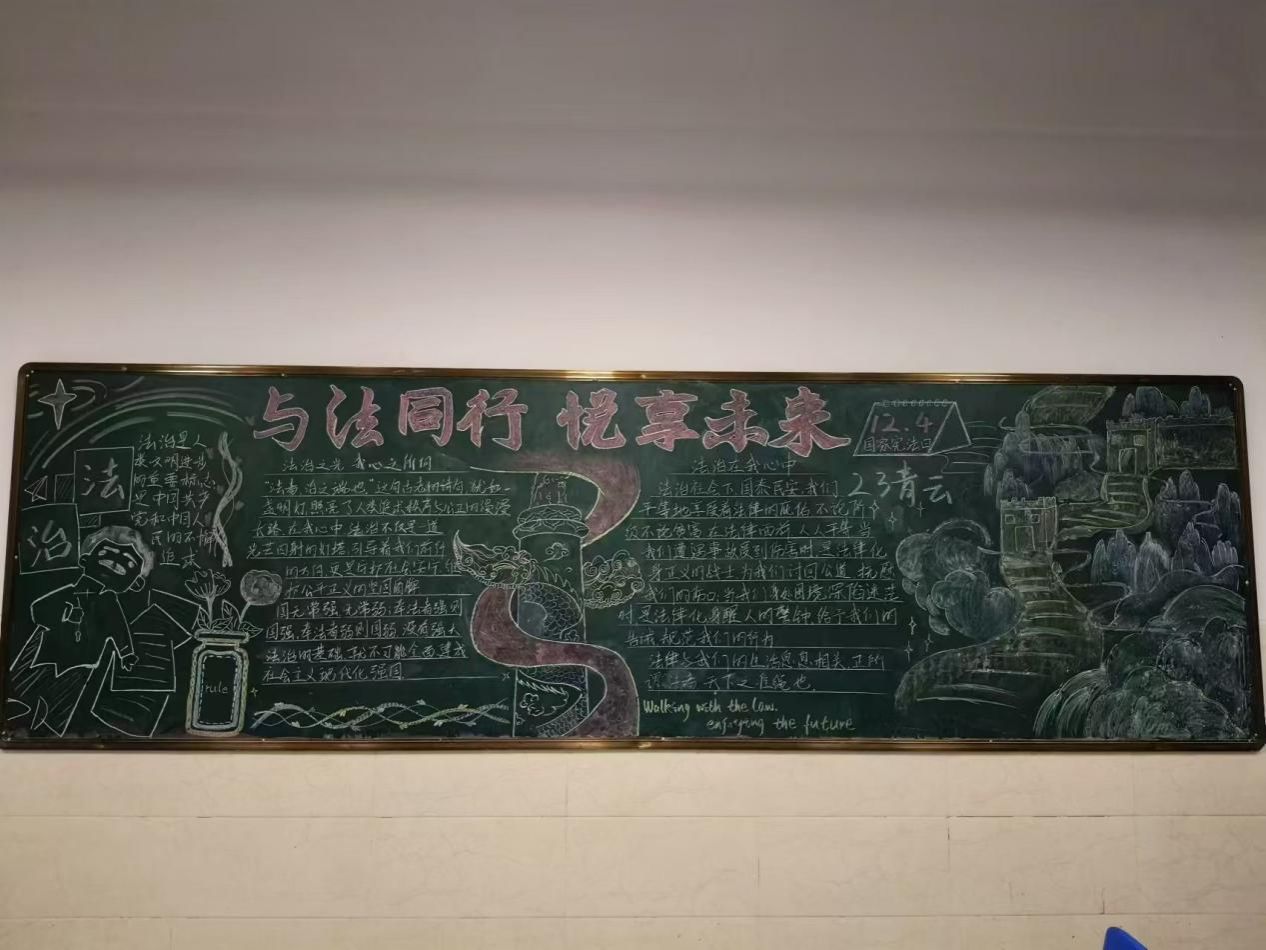 与法同行 悦享未来
12.4
国家宪法日
23青云
法
治
法治是人
类文明进步
的重要标志
更中国共产
党和中国人
民的不懈
追求
rule
法治之光 我心之所向
"法者,治之端也"这句古老的诗句 犹如一
盏明灯照亮了人类追求秩序与公正的漫漫
长路.在我心中,法治不仅是一道
光芒四射的灯塔 引导着我们前行
的方向,更是
公平正义的坚固盾牌
国无常强,无常弱.奉法者强则
国强,奉法者弱则国弱.没有强大
法治的基础,就不可能全面建成
社会主义现代化强国.
法治在我心中
法治社会下,国泰民安,我们
平等地享受着法律的庇佑 不论阶
级不论贫富,在法律面前,人人平等.当
我们遭遇事故受到伤害时,是法律化
身正义的战士,为我们讨回公道,抚慰
我们的伤口,当我们身处困境,深陷迷茫
时,是法律化身醒人的警钟,给予我们的
告诫,规范我们的行为
法律与我们的生活息息相关,正所
谓 法者,天下之准绳也.
Walking with the law.
enjoying the future